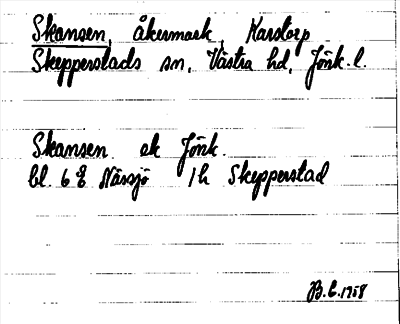 Skansen, åkermark, Karstorp
Skepperstads sn, Västra hd, Jönk. l.
Skansen ek Jönk.
bl. 6 E Nässjö 1h Skepperstad
B.E. 1958